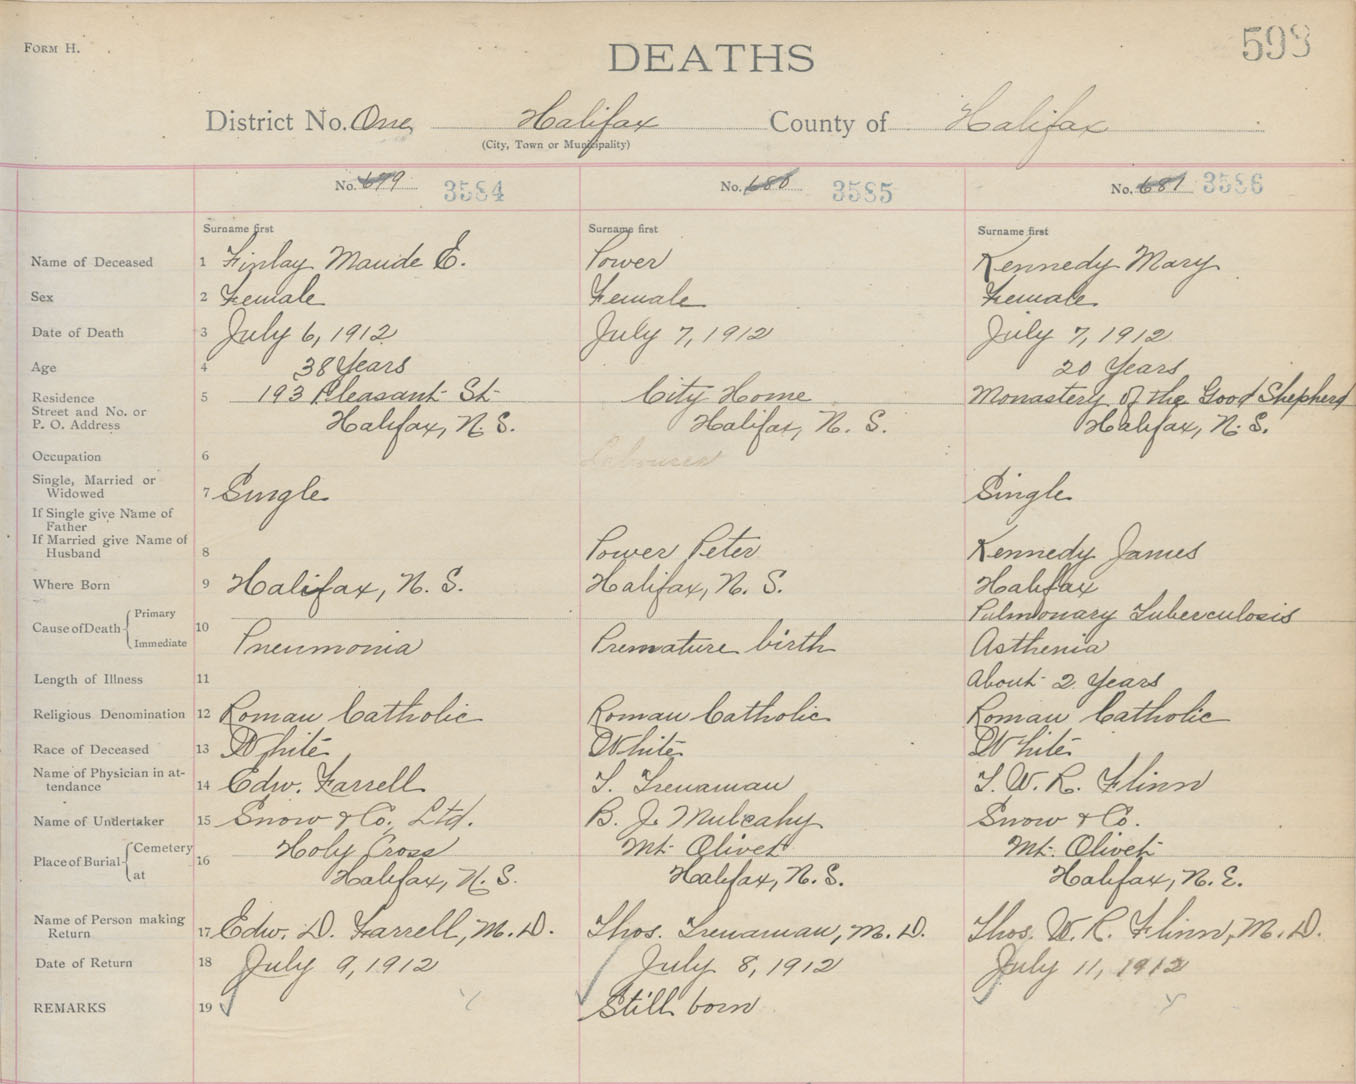 FORM H.
598
DEATHS
District No. One Halifax County of Halifax
(City, Town or Municipality)
No. 679 3584 No. 680 3585 No. 681 3586
Surname first Surname first Surname first
Name of Deceased 1 Finlay Maude E. Power Kennedy Mary
Sex 2 Female Female Female
Date of Death 3 July 6, 1912 July 7, 1912 July 7, 1912
Age 4 38 Years 20 Years
Residence 5 193 Pleasant St City Home Monastery of the Good Shepherd
Street and No. or
P. O. Address Halifax, N. S. Halifax, N. S. Halifax, N. S.
Occupation 6 Labourer
Single, Married or
Widowed 7 Single Single
If Single give Name of
Father
If Married give Name of
Husband 8 Power Peter Kennedy James
Where Born 9 Halifax, N. S. Halifax, N. S. Halifax
Cause of Death 10 Primary Pulmonary Tuberculosis
Immediate Pneumonia Premature birth Asthenia
Length of Illness 11 About 2 Years
Religious Denomination 12 Roman Catholic Roman Catholic Roman Catholic
Race of Deceased 13 White White White
Name of Physician in at-
tendance 14 Edw. Farrell T. Trenaman T. W. R. Flinn
Name of Undertaker 15 Snow & Co. Ltd. B. J. Mulcahy Snow & Co.
Place of Burial 16 Cemetery Holy Cross Mt. Olivet Mt. Olivet
at Halifax, N. S. Halifax, N. S. Halifax, N. E.
Name of Person making
Return 17 Edw. D. Farrell, M. D. Thos. Trenaman, M. D. Thos. W. R. Flinn, M. D.
Date of Return 18 July 9, 1912 July 8, 1912 July 11, 1912
REMARKS 19 Still born